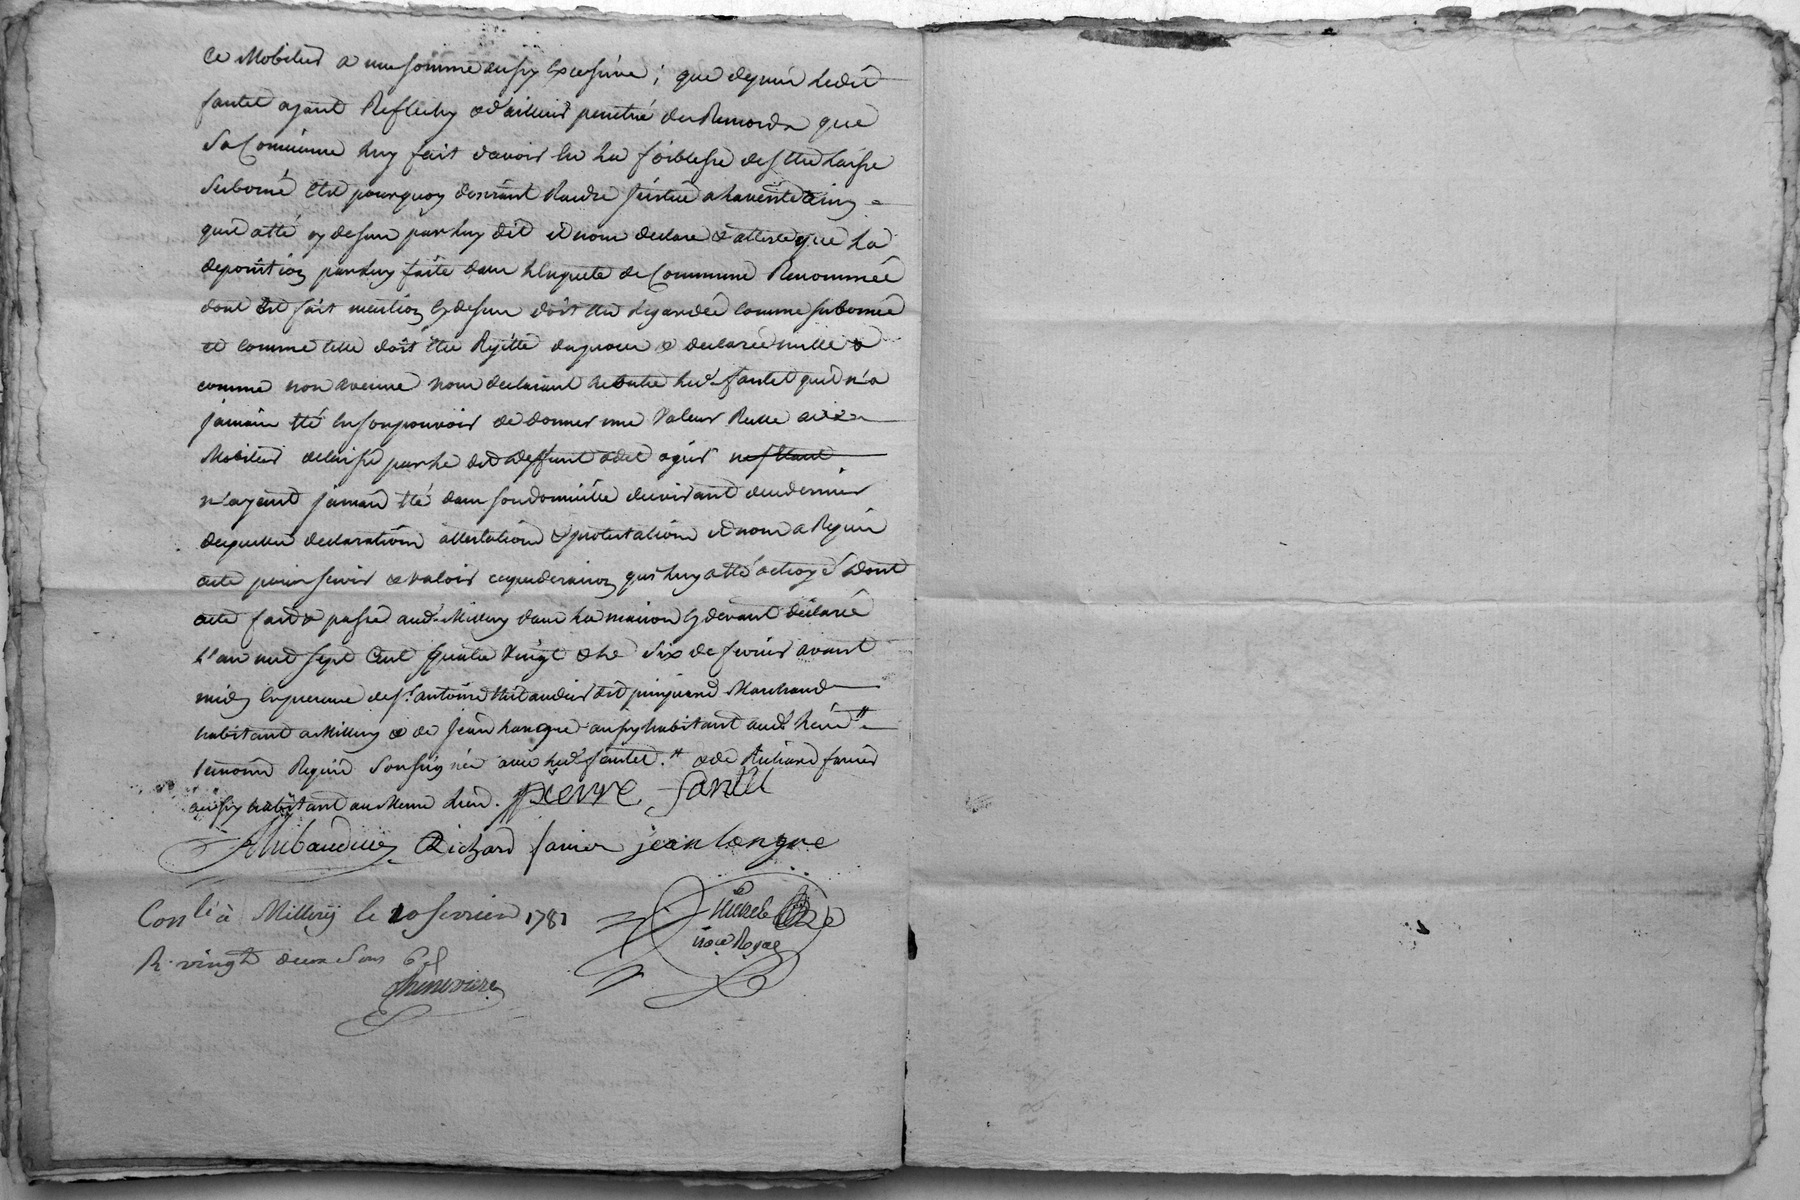 ce Mobilier a une somme aussy Excessive ; que depuis ledit
fantet ayant Reflechy & d'ailleurs penetré des Remords que
Sa Consience luy fait d'avoir Eu La foiblesse d'estre Laissé
Suborné C'est pourquoy desirant Rendre Justice a la verité
qui a été cy dessus par luy dit il nous declare & atteste que La
deposition par luy faite dans L'Enquete de Commune Renommée
dont Est fait mention Cy dessus doit Etre Regardée Comme subornée
et Comme telle doit etre Rejettée du procès & declarée nulle &
comme non avenue nous declarant en outre led. fantet qu'il n'a
jamais été En son pouvoir de donner une Valeur Reelle aux
Mobiliers delaissé par Le dit deffunt dit agir n'estant
n'ayant jamais été dans son domicille du vivant de ce dernier
desquelles declarations attestations & protestations il nous a Requis
acte pour servir & valoir ce que de raison qui luy a été octroyé Dont
acte fait & passé aud. Millery dans La maison Cy devant déclarée
L'an mil sept Cent Quatre Vingt & Le Six de fevrier avant
midy En presence de Sr. antoine thibaudier dit Marchand
habitant a Millery & de Jean Longre aussy habitant aud. Lieu
temoins Requis Soussignés avec led. fantet . & de Richard farier
aussy habitant au meme Lieu. Pierre fantet
Thibaudier Richard farier jean longre
Conlé à Millery le 10 fevrier 1781
R. vingt deux Sous 6 d
Chenevière
nore Royal